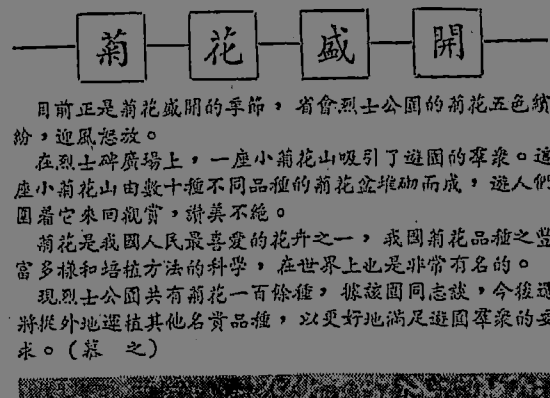 菊花盛開
目前正是菊花盛開的季節，省會烈士公園的菊花五色繽
紛，迎風怒放。
在烈士碑廣場上，一座小菊花山吸引了遊園的羣衆。這
座小菊花山由數十種不同品種的菊花盆堆砌而成，遊人們
圍着它來回觀賞，讃美不絕。
菊花是我國人民最喜愛的花卉之一，我國菊花品種之豐
富多樣和培植方法的科學，在世界上也是非常有名的。
現烈士公園共有菊花一百餘種，據該園同志談，今後還
將從外地運植其他名貴品種，以更好地滿足遊園羣衆的要
求。（慕　之）